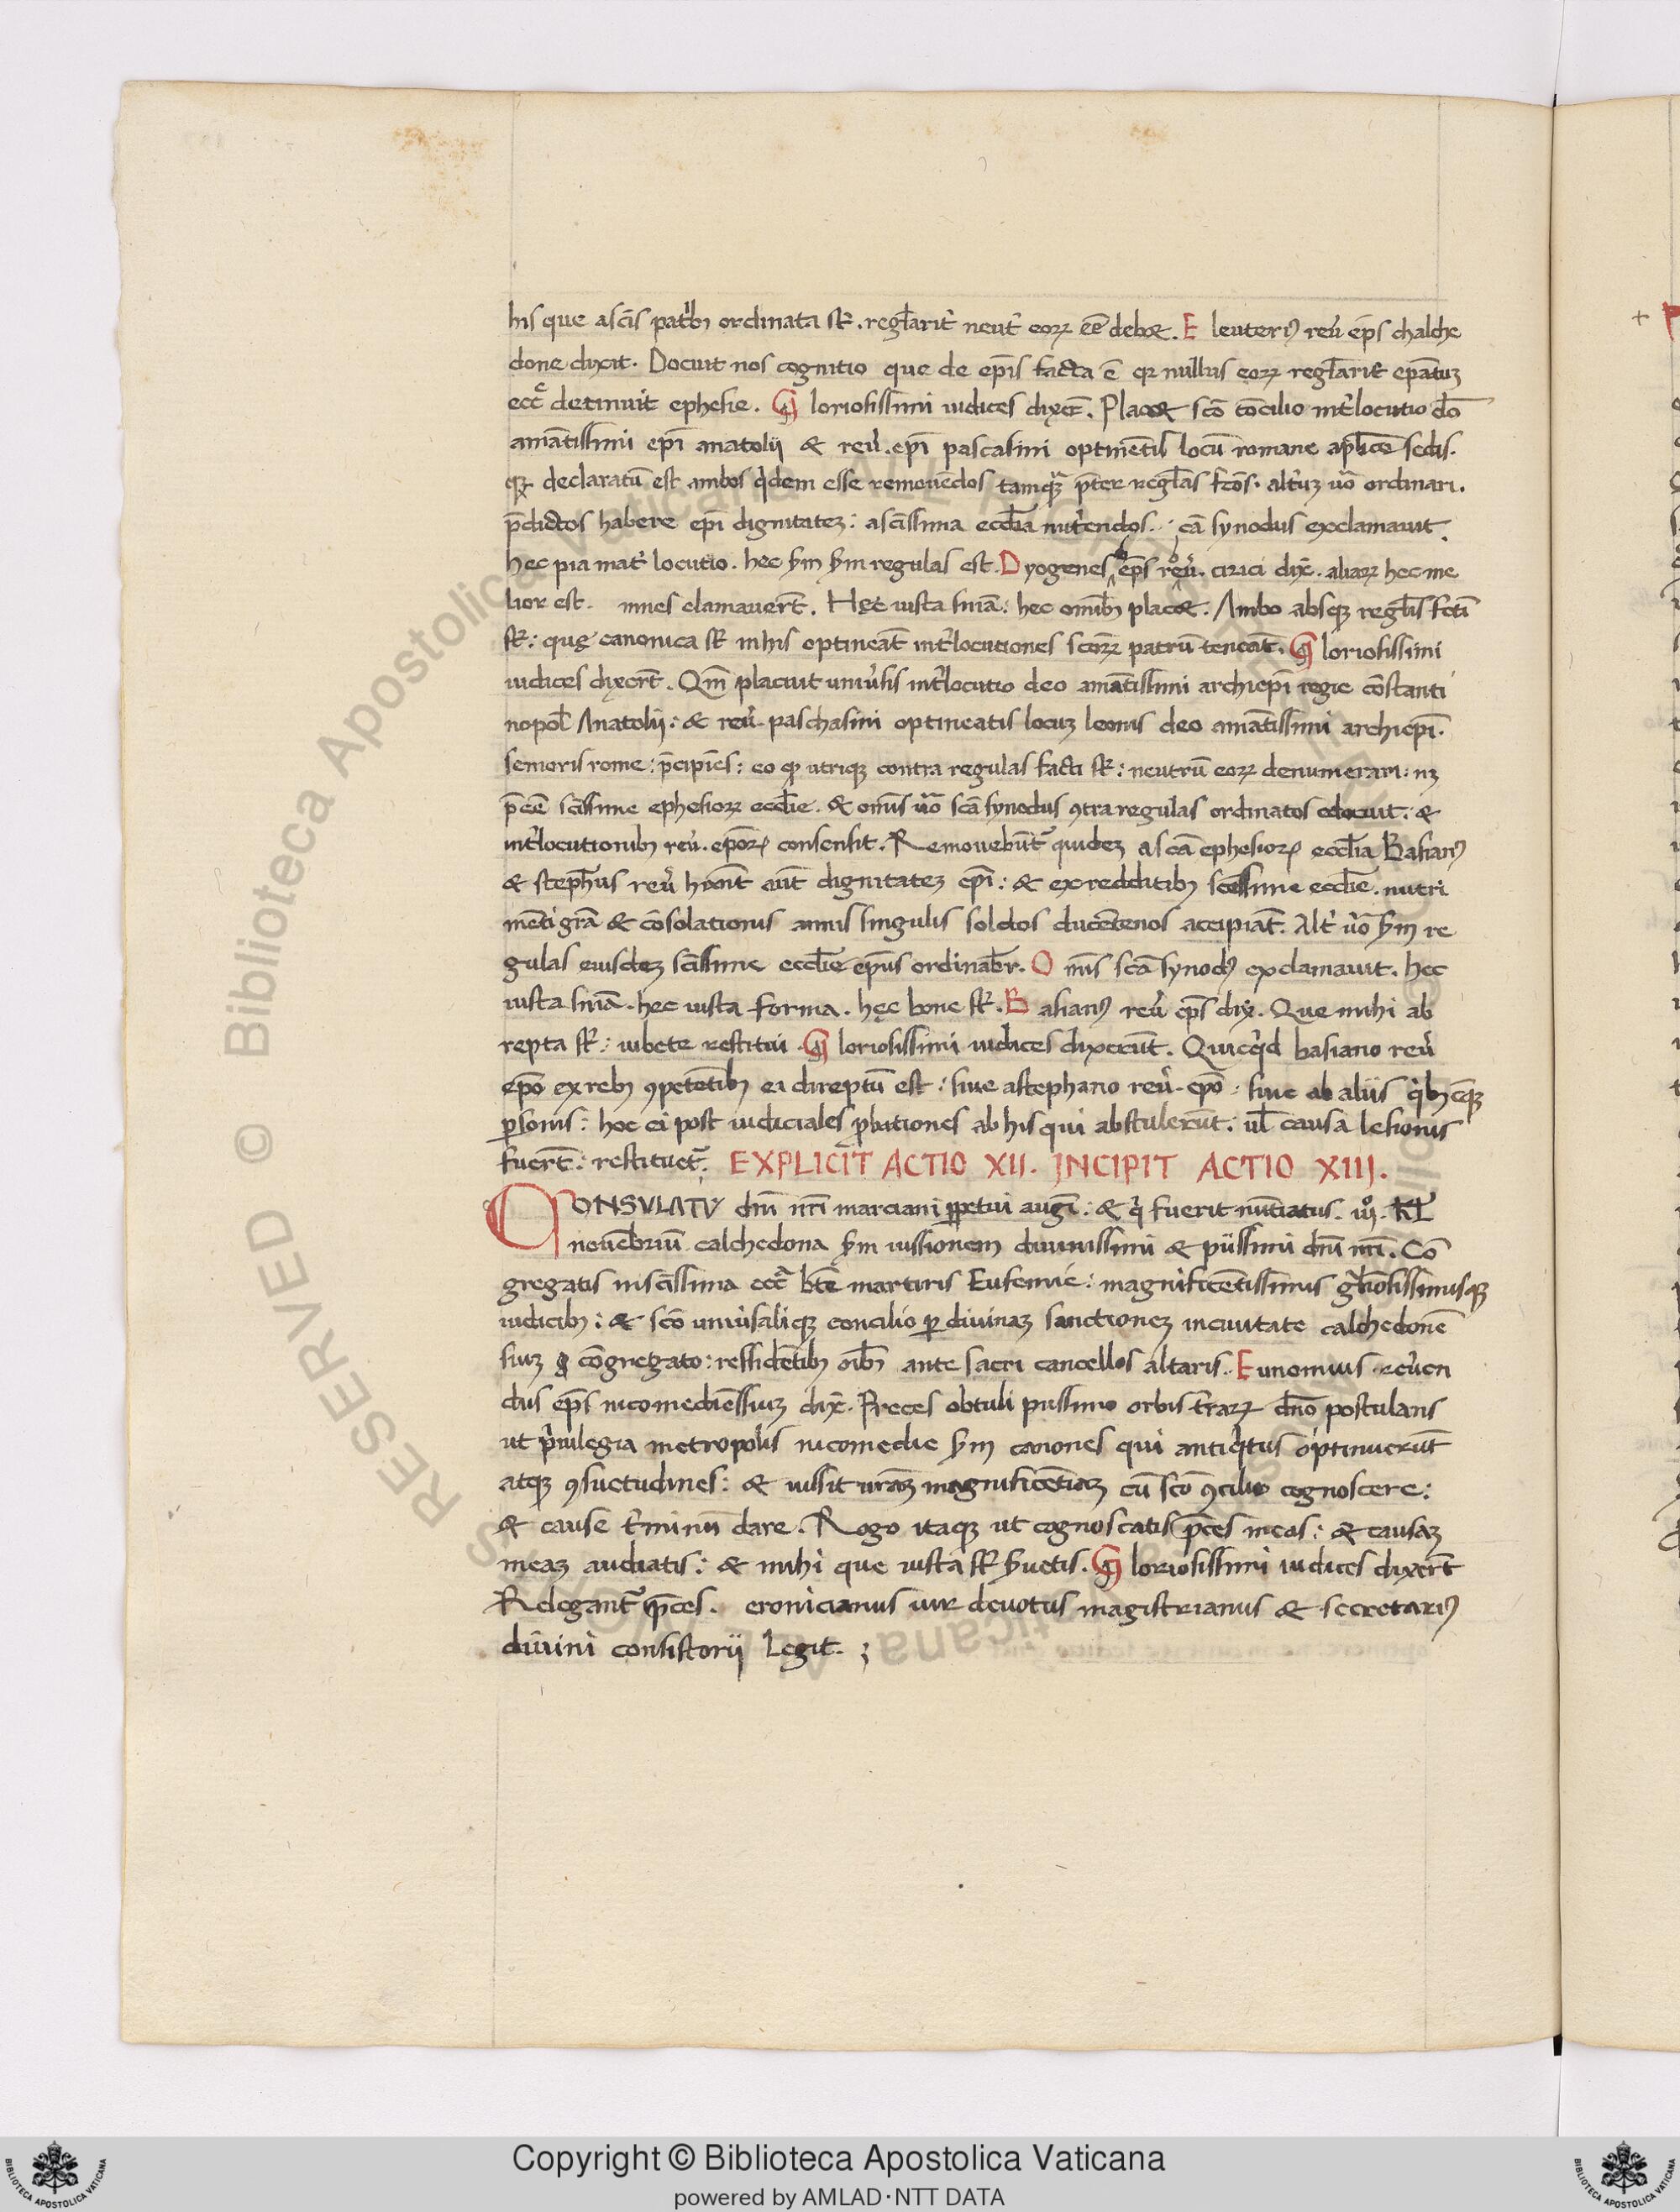 his que a sc̄is patrib; ordinata st̄. regl̄arit̓ neut̓ eoꝝ ēe debet. E leuteriꝰ reū ep̄s chalche
done dixit. Docuit nos cognitio que de ep̄is facta ē qꝛ nullus eoꝝ regl̄arit̓ ep̄atuꝫ
ecc̄ detinuit ephesie. G loriosissimi iudices dixer̄. Placet sc̄o cōcilio int̓locutio dō
amātissimi ep̄i anatolij & reū. ep̄i pascasini optinētis locū romane ap̄lice sedis.
declaratū est ambos q̓dem esse remouēdos tamqꝫ p̄ter regl̄as fc̄os. alt̓uꝫ ūo ordinari.
p̄dictos habere ep̄i dignitateꝫ: a sc̄issima eccl̄ia nut̓endos. cā synodus exclamauit.
hec pia mat̓ locutio. hec regulas est. Dyogenes ep̄s reū. cizici dix̄. aliaꝝ hec me
lior est. mnes clamauer̄t. Hęc iusta sn̄ia: hec omib; placet. Ambo absqꝫ regl̄is fc̄ti
st̄: quę canonica st̄ in his optineāt int̓locutiones sc̄oꝝ patrū teneāt. G loriosissimi
iudices dixer̄t. Qm̄ placuit uniu̓sis int̓locutio deo amātissimi archiep̄i regie cōstanti
nopol̄ Anatolij: & reū. paschasini optineatis locuꝫ leonis deo amātissimi archiep̄i.
senioris rome: p̄cipiēs: eo ꝙ utriqꝫ contra regulas facti st̄: neutrū eoꝝ denumerari:
p̄cēe sc̄issime ephesioꝝ eccl̄ie. & om̄s ūo sc̄a synodus ꝯtra regulas ordinatos edocuit: &
int̓locutionib; reū. ep̄oꝝ consensit. Remouebūt̓ quideꝫ a sc̄a ephesioꝝ eccl̄ia Basianꝰ
& steph̄us reū hn̄t aūt dignitateꝫ ep̄i: & ex redditib; sc̄issime eccl̄ie. nutri
mēti grā & cōsolationis annis singulis soldos ducētenos accipiāt. Alt̓ ūo re
gulas eiusdeꝫ sc̄issime eccl̄ie ep̄us ordinabr̄. O mīs sc̄a synodꝰ exclamauit. hec
iusta sn̄ia. hec iusta forma. hęc bone st̄. B asianꝰ reū ep̄s dix̄. Que mihi ab
repta st̄: iubete restitui. G loriosissimi iudices dixerūt. Quicq̓d basiano reū
ep̄o ex reb; ꝯpetētib; ei direptū est: siue a stephano reū. ep̄o. siue ab aliis q̓b;cūqꝫ
ꝑsonis: hoc ei post iudiciales ꝓbationes ab his qui abstulerūt. ul̄ causa lesionis
fuer̄t: restituet̓. EXPLICIT ACTIO XII. INCIPIT ACTIO XIIJ.
CONSVLATV dn̄i nr̄i marciani ꝑpetui auḡi: & q̓ fuerit nūtiatus. iijº. Kl̄
nouēbriū calchedona iussionem diuinissimi & piissimi dn̄i nr̄i. Cō
gregatis in sc̄issima ecc̄a bt̄e martiris Eufemie: magnificētissimis gl̄iosissimisqꝫ
iudicib;: & sc̄o uniu̓saliqꝫ concilio ꝑ diuinaꝫ sanctioneꝫ in ciuitate calchedonē
siuꝫ cōgregato: residētib; oīb; ante sacri cancellos altaris. Eunomius reu̓en
dus ep̄s nicomediēssiuꝫ dix̄. Preces obtuli piissimo orbis t̓raꝝ dn̄o postulans
ut p̓uilegia metropolis nicomedie canones qui antiq̓tus optinuerūt
atqꝫ ꝯsuetudines: & iussit ur̄aꝫ magnificētiaꝫ cū sc̄o ꝯcilio cognoscere:
& cause t̓minū dare. Rogo itaqꝫ ut cognoscatis p̄ces meas: & causaꝫ
meaꝫ audiatis: & mihi que iusta st̄ s̄uetis. G loriosissimi iudices dixer̄t
Relegant̓ p̄ces. eronicianus uir deuotus magistrianus & secretariꝰ
diuini consistorij legit.
Copyright © Biblioteca Apostolica Vaticana
powered by AMLAD·NTT DATA